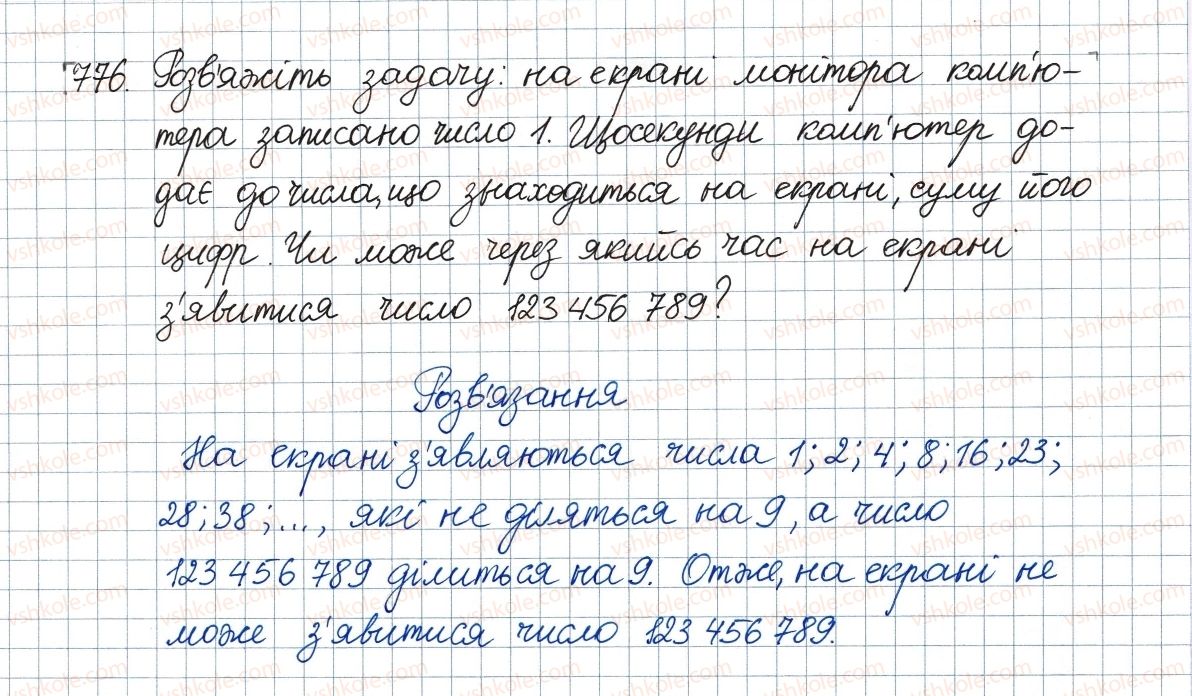 776. Розв'яжіть задачу: на екрані монітора комп'ю-
тера записано число 1. Щосекунди комп'ютер до-
дає до числа, що знаходиться на екрані, суму його
цифр. Чи може через якийсь час на екрані
з'явитися число 123 456 789?
Розв'язання
На екрані з'являються числа 1; 2; 4; 8; 16; 23;
28; 38; ..., які не діляться на 9, а число
123 456 789 ділиться на 9. Отже, на екрані не
може з'явитися число 123 456 789.